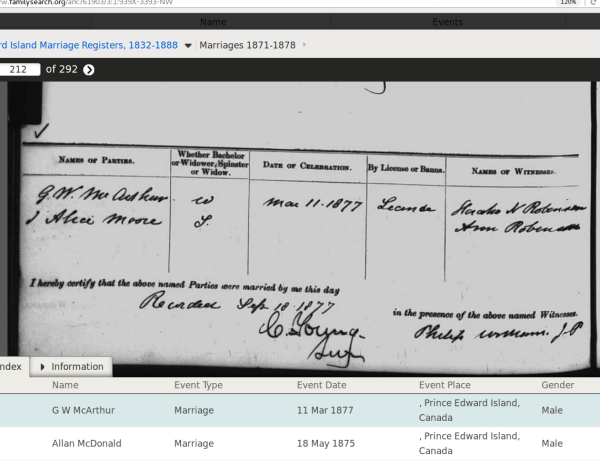 ww.familysearch.org/ark:/61903/3:1:939X-3393-NW
120%
Name Events
rd Island Marriage Registers, 1832-1888 Marriages 1871-1878
212 of 292
NAMES OF PARTIES. Whether Bachelor or Widower, Spinster or Widow. DATE OF CELEBRATION. By License or Banns. NAMES OF WITNESSES.
G. W. McArthur W Mar 11. 1877 N Robinson
J Alice Moore S. Ann Robinson
I hereby certify that the above named Parties were married by me this day
Recorded Sep 18. 1877
in the presence of the above named Witnesses.
C. Young
Philip J.P
Surg
ndex Information
Name Event Type Event Date Event Place Gender
G W McArthur Marriage 11 Mar 1877 , Prince Edward Island, Canada Male
Allan McDonald Marriage 18 May 1875 , Prince Edward Island, Canada Male